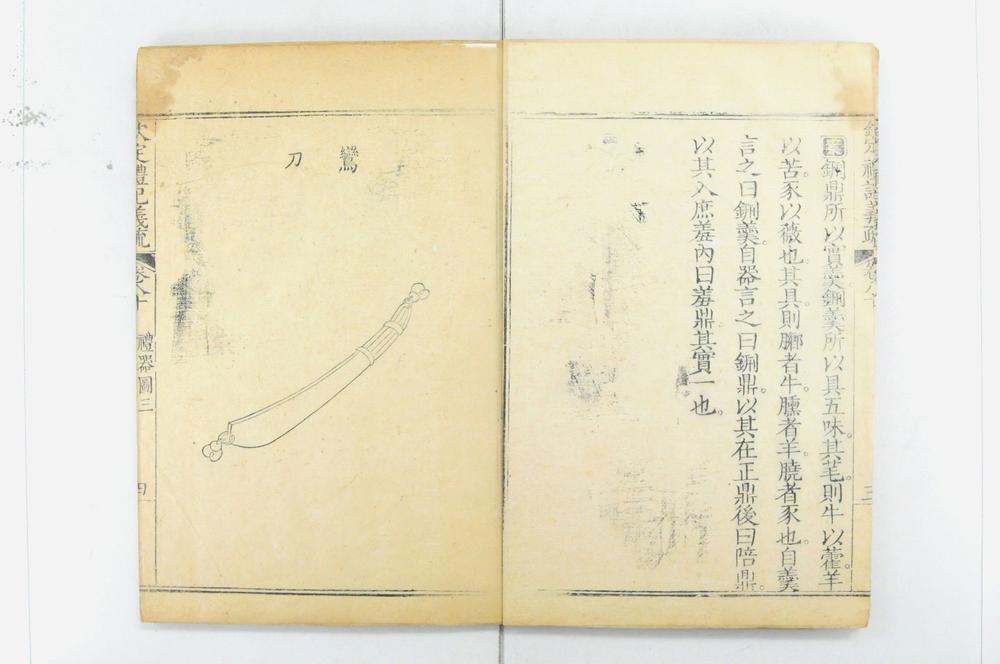 欽定禮記義疏 卷八十 三
案鉶鼎所以實羹鉶羹所以具五味。其芼。則牛以藿。羊
以苦。豕以薇也。其具則膷者牛。臐者羊。膮者豕也。自羹
言之曰鉶羹。自器言之曰鉶鼎。以其在正鼎後曰陪鼎。
以其入庶羞內曰羞鼎。其實一也。
鸞刀
欽定禮記義疏 卷八十 禮器圖三 四